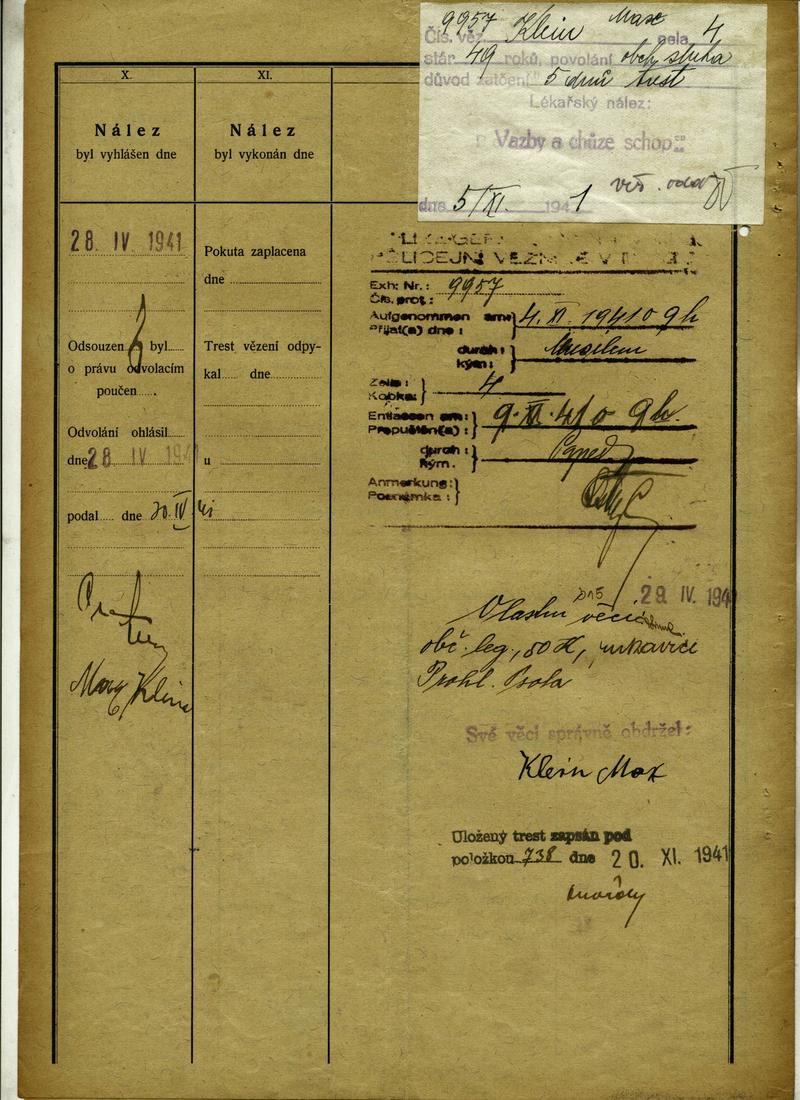 9957 Klein Max
Čís. věz. cela 4
stár 49 roků, povolání obch. sluha
důvod zatčení 5 dnů trest
Lékařský nález:
Vazby a chůze schop
dne 5/XI. 1941
X.
Nález
byl vyhlášen dne
28. IV 1941
Odsouzen byl
o právu odvolacím
poučen
Odvolání ohlásil
dne 28 IV 1941
podal dne 30. IV
Max Klein
XI.
Nález
byl vykonán dne
Pokuta zaplacena
dne
Trest vězení odpy-
kal dne
u
POLICEJNÍ VĚZNICE V
Exh: Nr.: 9957
Čís. prot:
Aufgenommen am: 4. XI. 1941 o 9 h
Přijat(a) dne:
durch:
kým:
Zelle: 4
Kobka:
Entlassen am: 9. XI. 41 o 9 h.
Propuštěn(a):
durch:
kým.
Anmerkung:
Poznámka:
29. IV. 194
Vlastní věci
obč. leg., 50 H, rukavice
Prohl.
Své věci správně obdržel:
Klein Max
Uložený trest zapsán pod
položkou 738 dne 20. XI. 1941